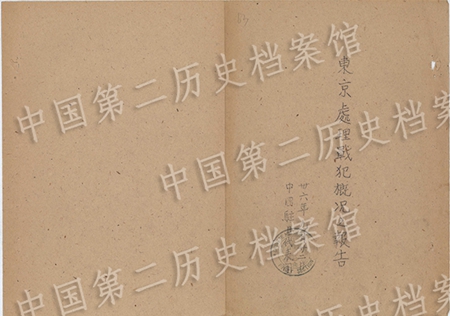 東京處理戰犯概況報告
卅六年
中國駐日代表團
63
中国第二历史档案馆
中国第二历史档案馆
中国第二历史档案馆